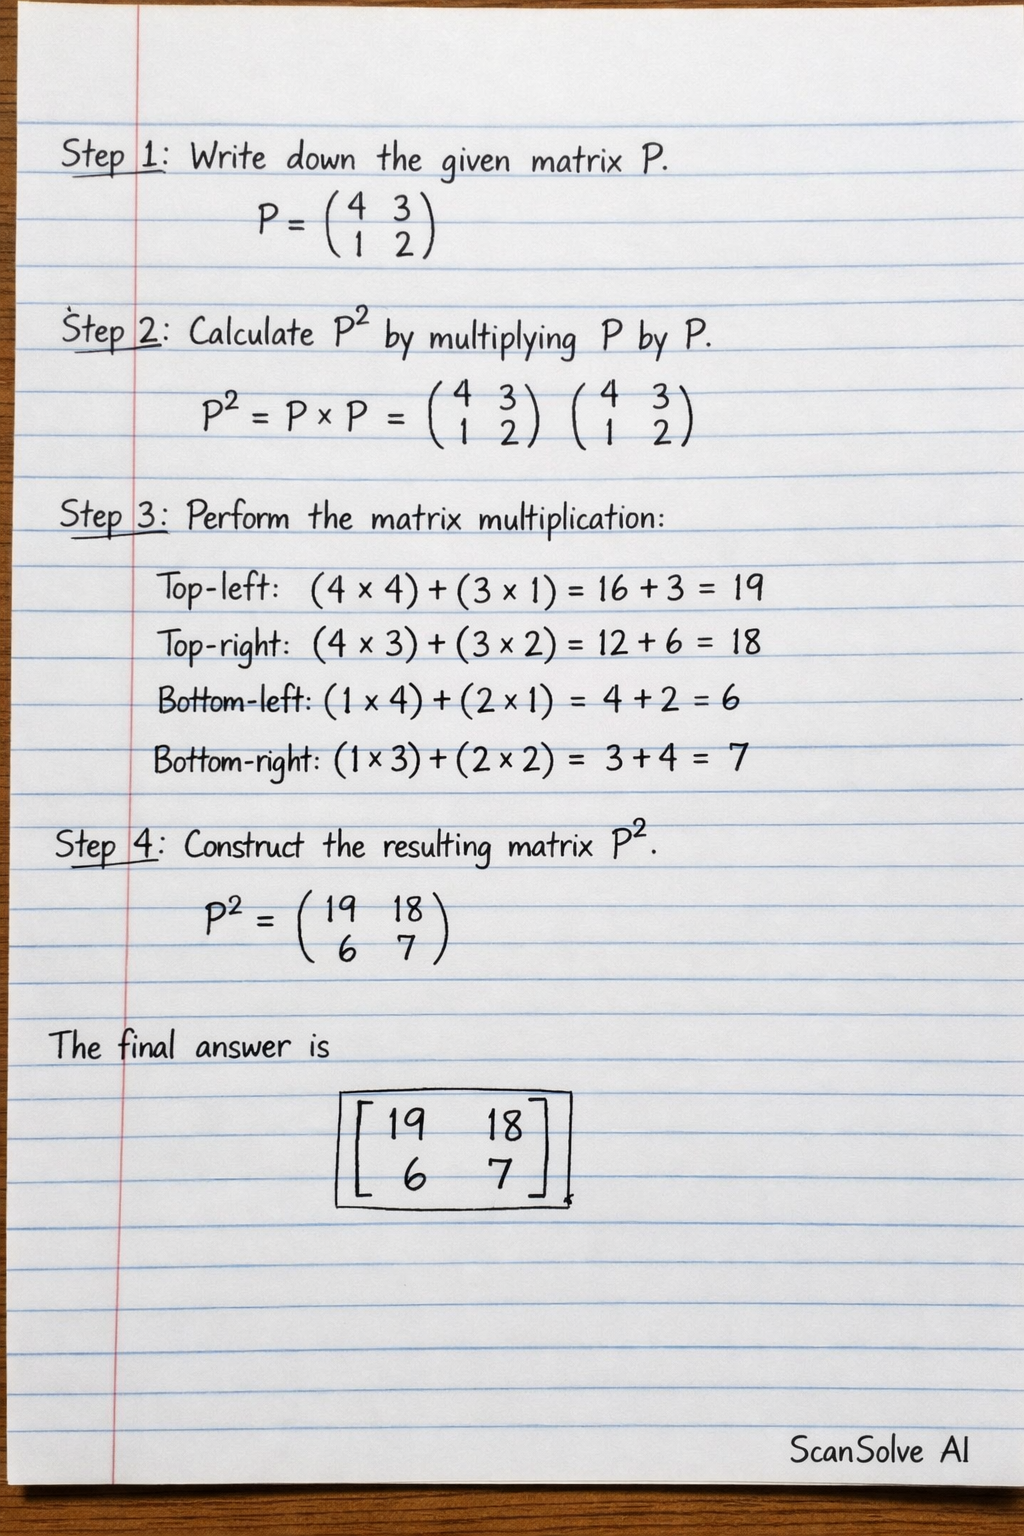 Step 1: Write down the given matrix P.
P = ( 4 3
1 2 )
Step 2: Calculate P² by multiplying P by P.
P² = P × P = ( 4 3 ) ( 4 3 )
1 2 1 2
Step 3: Perform the matrix multiplication:
Top-left: (4 × 4) + (3 × 1) = 16 + 3 = 19
Top-right: (4 × 3) + (3 × 2) = 12 + 6 = 18
Bottom-left: (1 × 4) + (2 × 1) = 4 + 2 = 6
Bottom-right: (1 × 3) + (2 × 2) = 3 + 4 = 7
Step 4: Construct the resulting matrix P².
P² = ( 19 18
6 7 )
The final answer is
[ 19 18
6 7 ].
ScanSolve AI